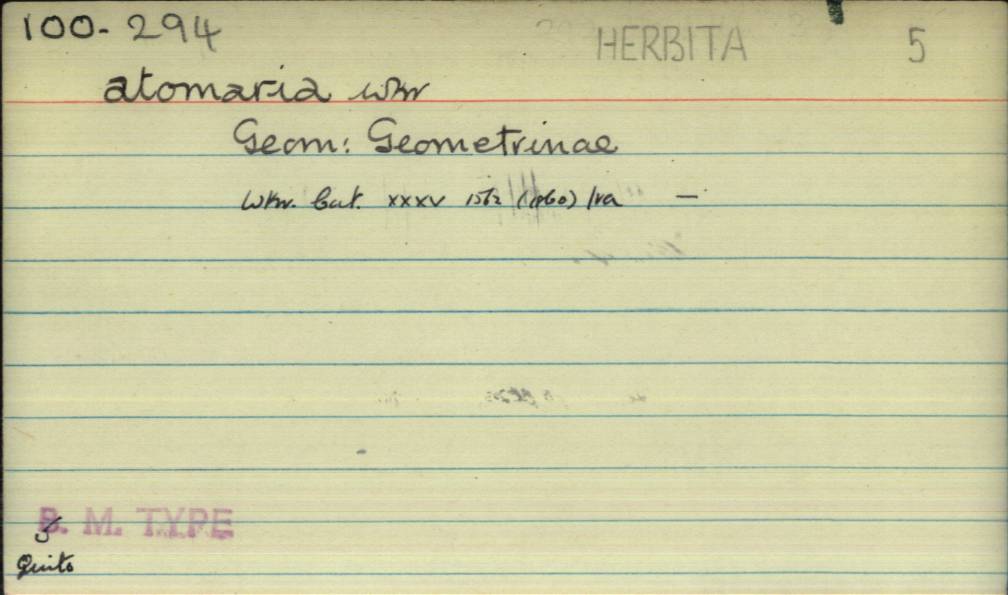 100-294 HERBITA 5
atomaria wkr
Geom: Geometrinae
wkr. Cat. xxxv 1562 —
B. M. TYPE
Quito